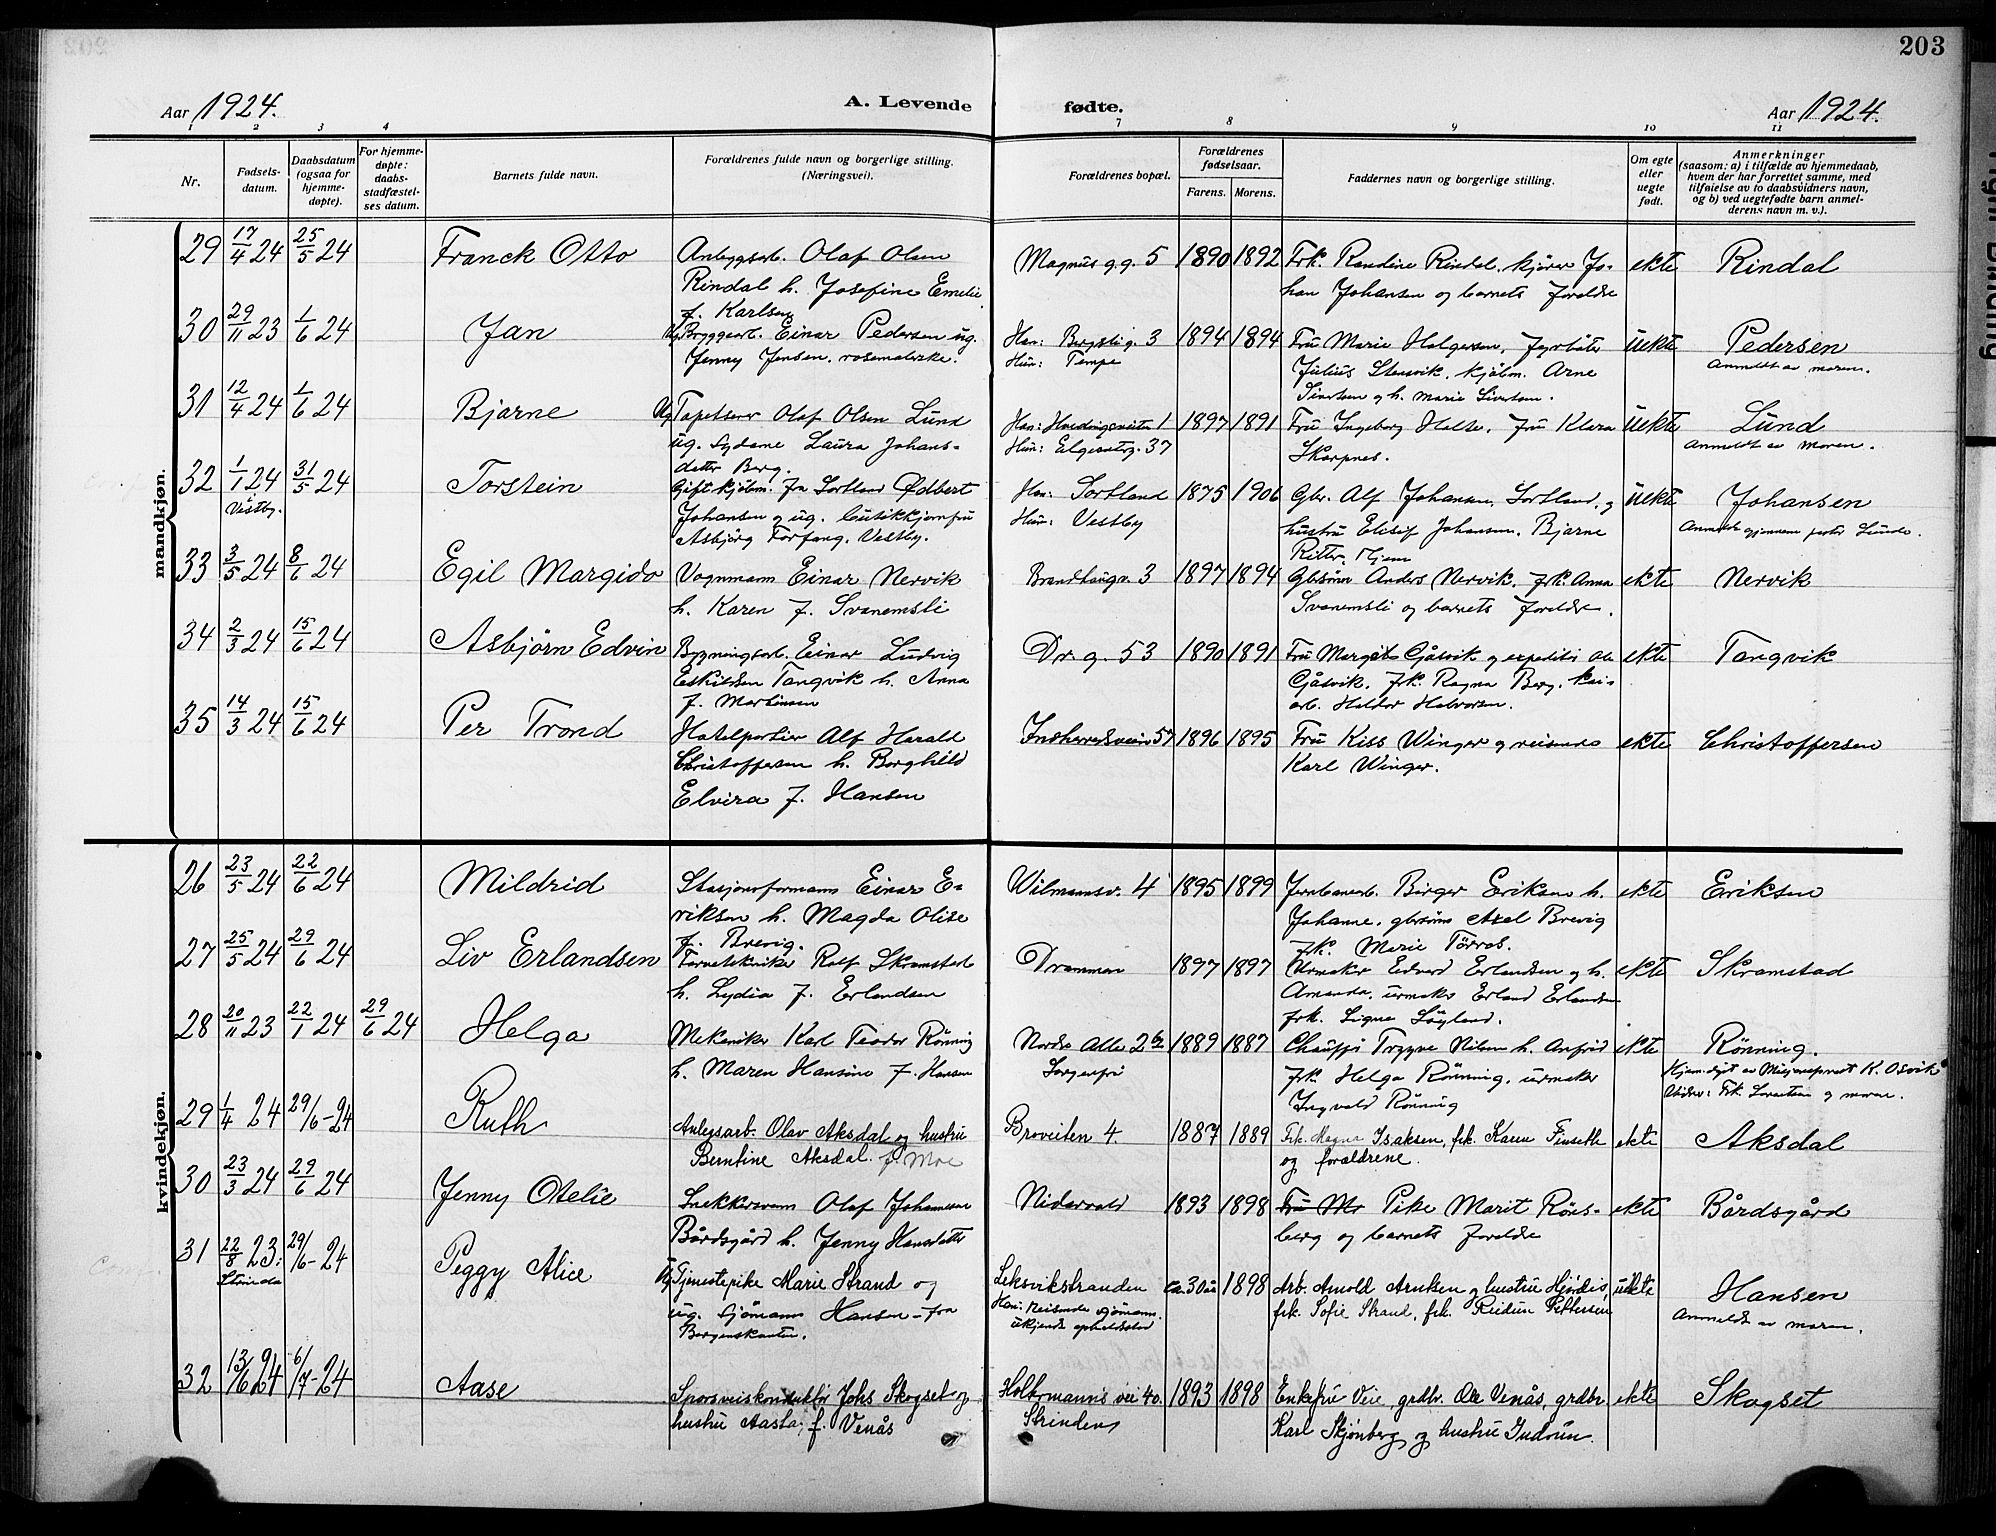 203
Aar 1924. A. Levende fødte. Aar 1924.
1 2 3 4 7 8 9 10 11
Nr.
Fødsels-
datum.
Daabsdatum
(ogsaa for
hjemme-
døpte).
For hjemme-
døpte:
daabs-
stadfæstel-
ses datum.
Barnets fulde navn.
Forældrenes fulde navn og borgerlige stilling.
(Næringsvei).
Forældrenes bopæl.
Forældrenes
fødselsaar.
Farens. Morens.
Faddernes navn og borgerlige stilling.
Om egte
eller
uegte
født.
Anmerkninger
(saasom: a) i tilfælde av hjemmedaab,
hvem der har forrettet samme, med
tilføielse av to daabsvidners navn,
og b) ved uegtefødte barn anmel-
derens navn m. v.).
mandkjøn.
29 17/4 24 25/5 24 Franck Otto Anlegsarb. Olaf Olsen Magnus g.g. 5 1890 1892 Frk. Randine Rindal, kjører Jo- ekte Rindal
Rindal h. Josefine Emelie han Johansen og barnets foreldre
f. Karlsen
30 29/11 23 1/6 24 Jan Ug. Bryggearb. Einar Pedersen ug. Han: Bergslig. 3 1894 1894 Fru Marie Holgersen, fyrbøter uekte Pedersen
Jenny Jensen, Hun: Tempe Julius Stensvik, kjøbm. Arne Anmeldt av moren.
Sivertsen og h. Marie Sivertsen.
31 12/4 24 1/6 24 Bjarne Ug. Tapetserer Olaf Olsen Lund Han: 1 1897 1891 Fru Ingeborg Halse, Fru Klara uekte Lund
ug. sydame Laura Johans- Hun: Elgeseterg. 37 Skarpnes. Anmeldt av moren.
datter Berg.
32 1/1 24 31/5 24 Torstein Gift kjøbm. fra Sortland Ødbert Han: Sortland 1875 1906 Gbr. Alf Johansen, Sortland, og uekte Johansen
Vestby. Johansen og ug. butikkjomfru Hun: Vestby hustru Elisif Johansen. Bjarne Anmeldt gjennem pastor Lunde.
Asbjørg Torfang, Vestby. Ritter, Hjem
33 3/5 24 8/6 24 Egil Margido Vognmann Einar Nervik Brandhaugv. 3 1897 1894 Gbrsønn Anders Nervik, frk. Anna ekte Nervik
h. Karen f. Svanemsli Svanemsli og barnets foreldre.
34 2/3 24 15/6 24 Asbjørn Edvin Bygningsarb. Einar Ludvig Dr. g. 53 1890 1891 Fru Margit Gjåsvik og expeditør Ole ekte Tangvik
Eskildsen Tangvik h. Anna Gjåsvik, frk. Ragna Berg, kai-
f. Martinsen arb. Haldor Halvorsen.
35 14/3 24 15/6 24 Per Trond Hotelportier Alf Harald Innherredsveien 57 1896 1895 Fru Kiss Winger og reisende ekte Christoffersen
Christoffersen h. Borghild Karl Winger.
Elvira f. Hansen
kvindekjøn.
26 23/5 24 22/6 24 Mildrid Stasjonsformann Einar E- Wilmannsv. 4 1895 1899 Jernbanearb. Birger Eriksen h. ekte Eriksen
riksen h. Magda Olise Johanne, gbrsønn Axel Brevig
f. Brevig. frk. Marie Törros.
27 25/5 24 29/6 24 Liv Erlandsen Rolf Skramstad Drammen 1897 1897 Urmaker Edvard Erlandsen og h. ekte Skramstad
h. Lydia f. Erlandsen Amanda, urmaker Erland Erlandsen
frk. Signe Söyland.
28 20/11 23 22/1 24 29/6 24 Helga Mekaniker Karl Teodor Rönning Nordre Alle 2b 1889 1887 Chauffør Trygve Nilsen h. Anfrid ekte Rönning.
h. Maren Hansine f. Hansen Sorgenfri frk. Helga Rönning, urmaker Hjem.døpt av Misjonsprest K. Osvik
Ingvald Rönning Vidner: Frk. og moren.
29 1/4 24 29/6-24 Ruth Anlegsarb. Olav Aksdal og hustru Broveiten 4. 1887 1889 Frk. Magna Isaksen, frk. Karen Finseth ekte Aksdal
Berntine Aksdal f. Moe og forældrene.
30 23/3 24 29/6 24 Jenny Otelie Snekkersvenn Olaf Johannesen Nidarvold 1893 1898 Fru Mr Pike Marit Röns- ekte Bårdsgård
Bårdsgård h. Jenny Hansdatter berg og barnets foreldre
31 22/8 23. 29/6-24 Peggy Alice Ug. Tjenestepike Marie Strand og Leksvikstranden ca. 30 år 1898 Arb. Arnold Arntsen og hustru Hjördis, uekte Hansen
Strinda ug. sjömann Hansen - fra Han: Reisende sjömann. frk. Sofie Strand, frk. Reidun Pettersen Anmeldt av moren.
Bergenskanten. ukjendt opholdssted
32 13/6 24 6/7-24 Aase Sporveiskonduktør Johs Skogset og Holtermanns vei 40. 1893 1898 Enkefru Veie, grdbr. Ole Venås, grdbr. ekte Skogset
hustru Aasta, f. Venås Strinden Karl Skjønberg og hustru Gudrun.